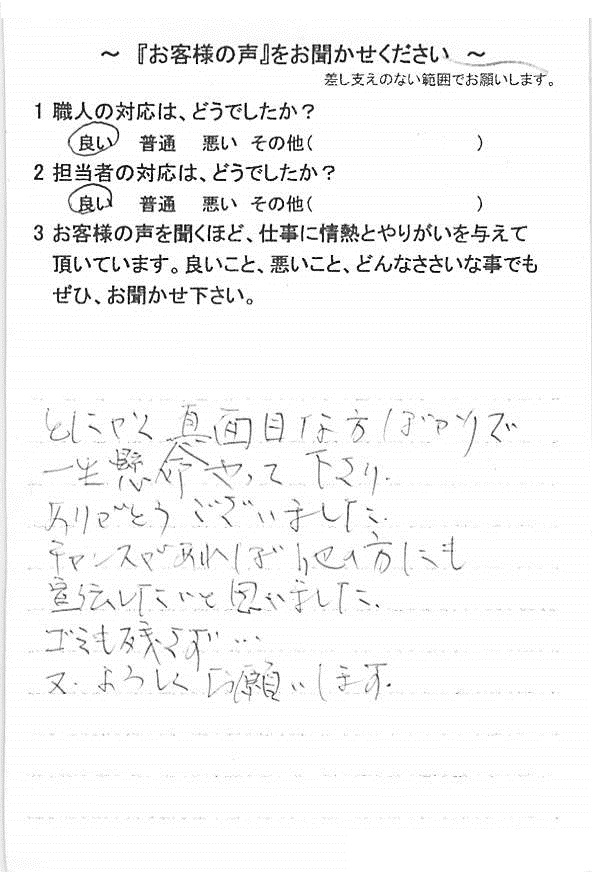 ～ 『お客様の声』をお聞かせください ～
差し支えのない範囲でお願いします。
1 職人の対応は、どうでしたか？
良い 普通 悪い その他( )
2 担当者の対応は、どうでしたか？
良い 普通 悪い その他( )
3 お客様の声を聞くほど、仕事に情熱とやりがいを与えて
頂いています。良いこと、悪いこと、どんなささいな事でも
ぜひ、お聞かせ下さい。
とにかく真面目な方ばかりで
一生懸命やって下さり.
ありがとうございました.
チャンスがあれば他の方にも
宣伝したいと思いました.
ゴミも残さず…
又.よろしくお願いします.